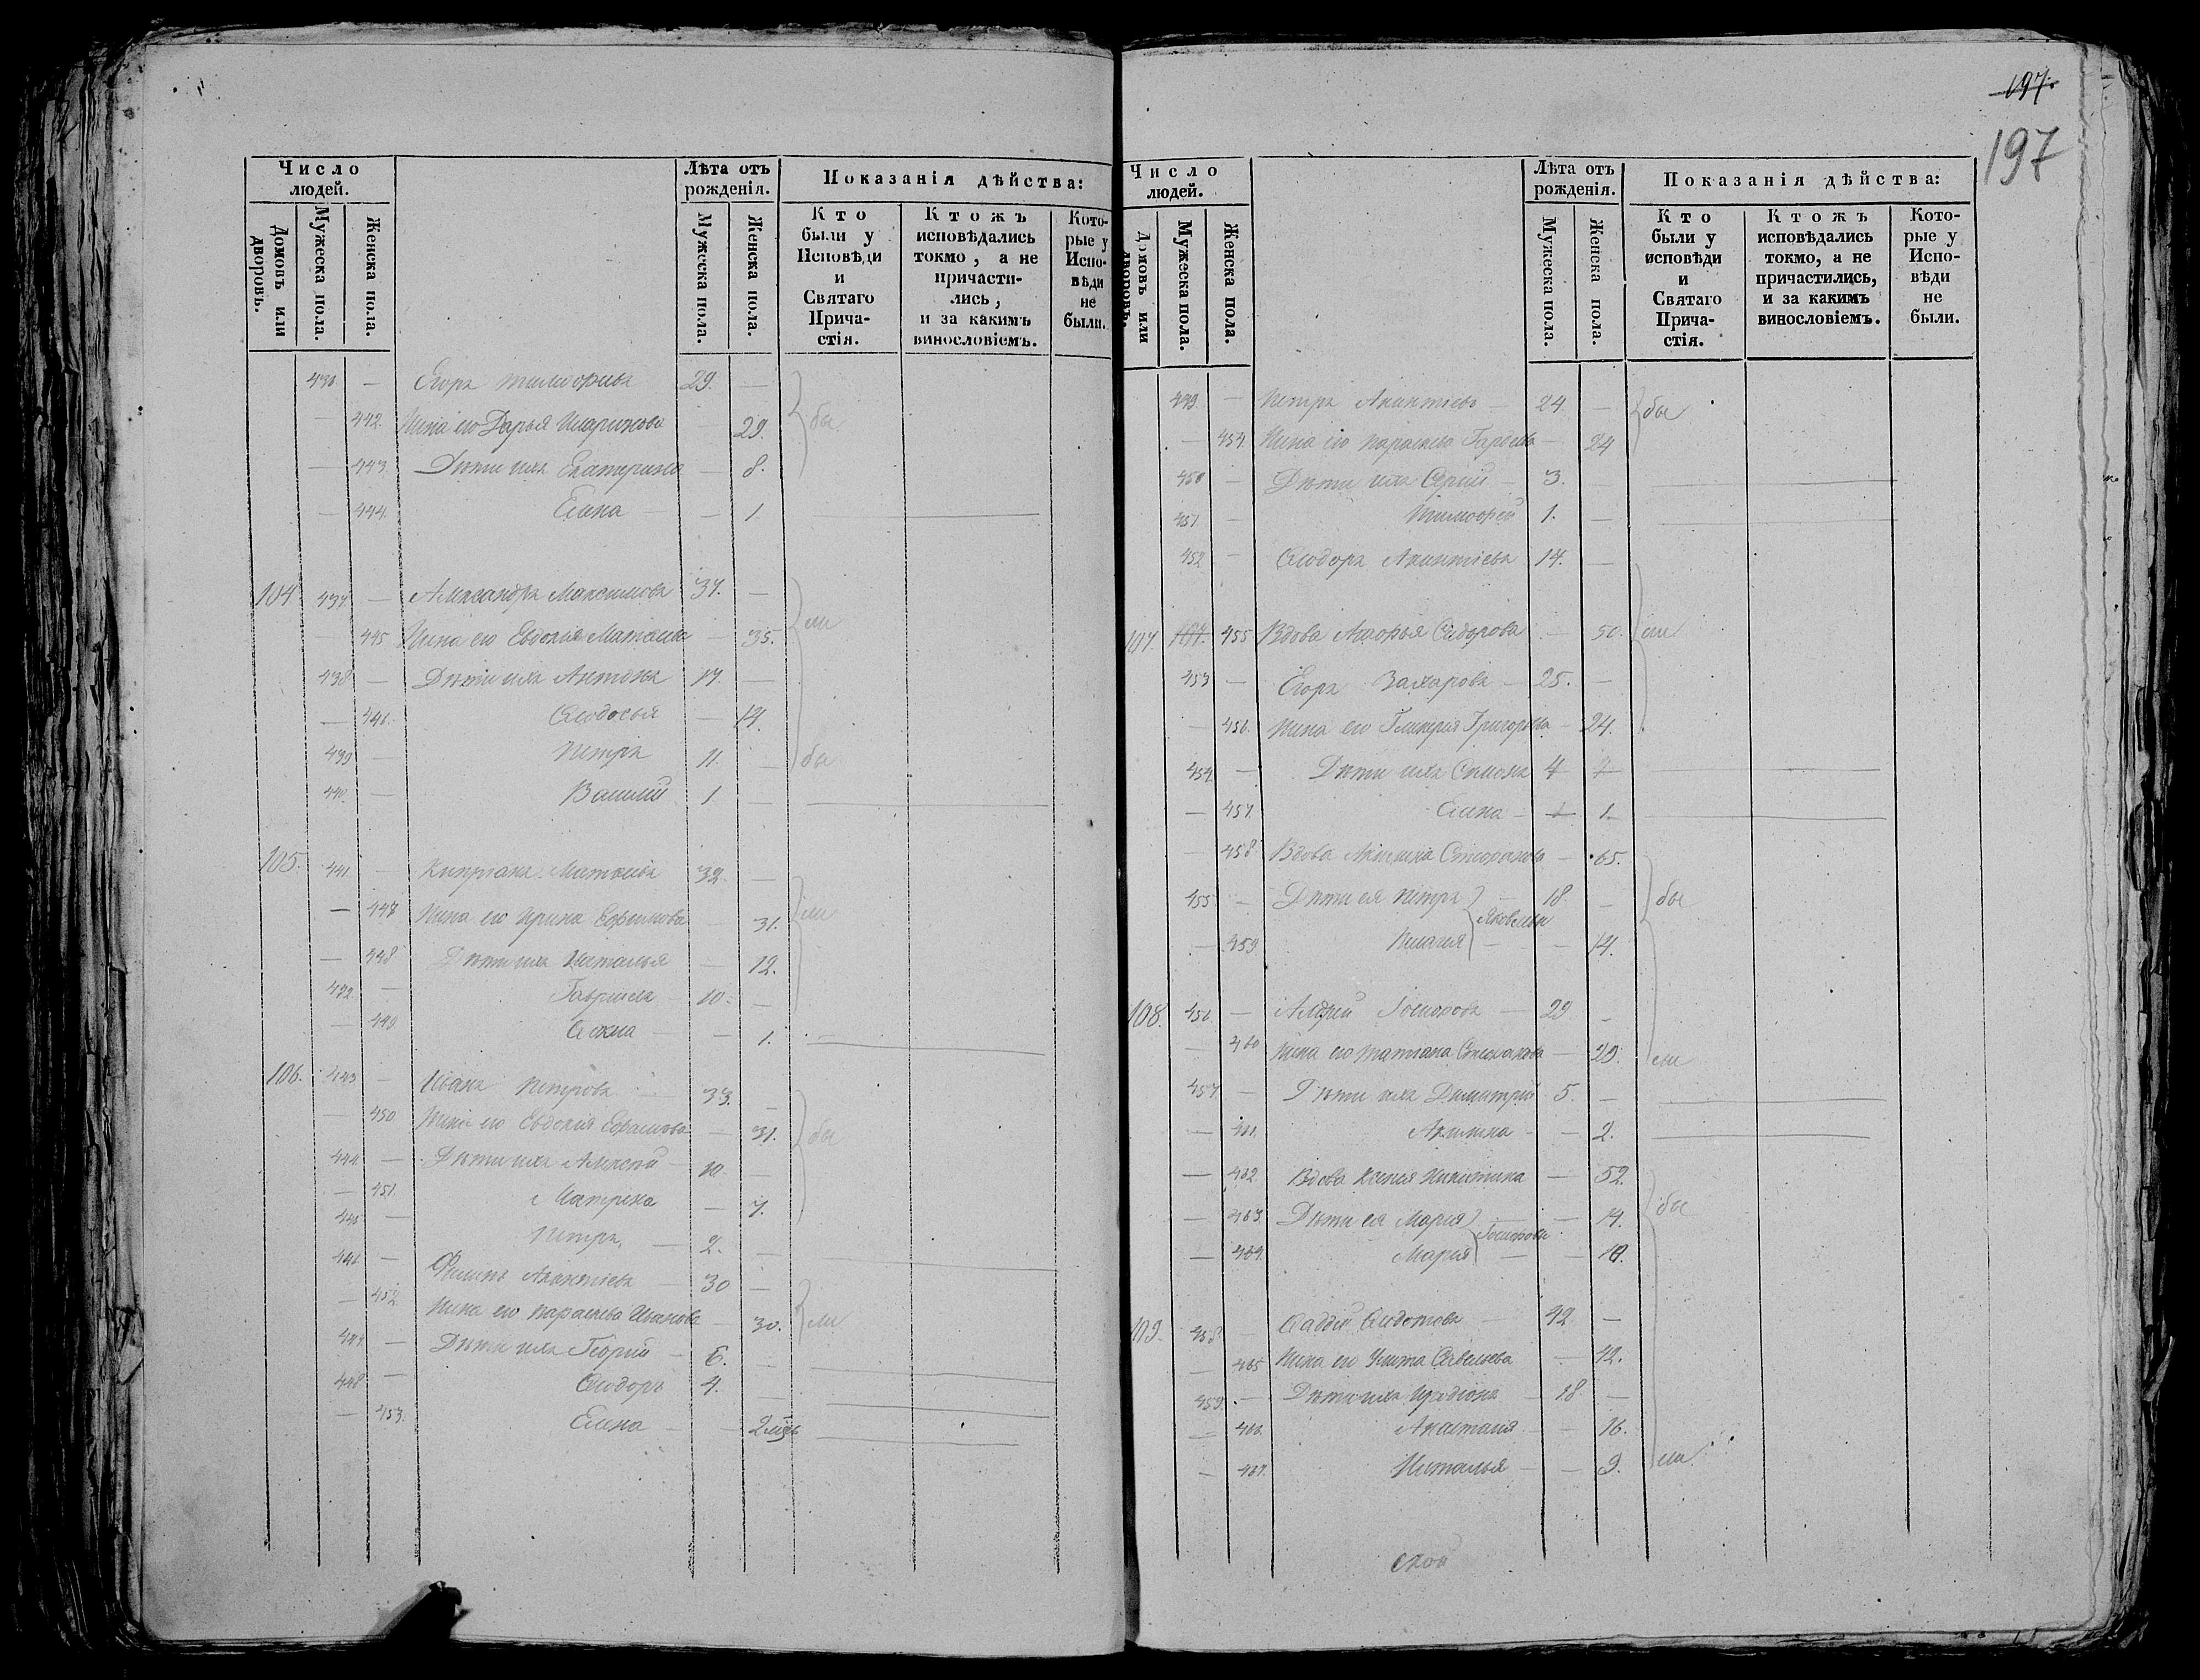 Число людей.
Домовъ или дворовъ.
Мужеска пола.
Женска пола.
Лѣта отъ рожденія.
Мужеска пола.
Женска пола.
Показанія дѣйства:
Кто были у Исповѣди и Святаго Прича-стія.
Ктожъ исповѣдались токмо, а не причасти-лись, и за какимъ винословіемъ.
Кото-рые у Испо-вѣди не были.
436 — Егоръ Тимофѣевъ 29. —
— 442. Жена его Дарья Иларионова — 29. бы
— 443. Дѣти ихъ Екатерина — 8.
— 444. Елена — — 1
104 437. — Александръ Максимовъ 37. —
— 445 Жена его Евдокія Матвѣева — 35. ли
438 — Дѣти ихъ Антонъ 17. —
— 446. Ѳеодосья — 14.
439 — Петръ 11. — бы
440. — Василій 1. —
105. 441 — Кипріанъ Матвѣевъ 32. —
— 447 Жена его Ирина Ефимова — 31. ли
— 448 Дѣти ихъ Наталья — 12.
442 — Гавріилъ 10. —
— 449 — 1.
106. 443 — Иванъ Петровъ 33. —
— 450 Жена его Евдокія — 31. бы
444 — Дѣти ихъ Алексѣй 10. —
— 451. Матрена — 7.
445 — Петръ — 2. —
446 — Филипъ 30 —
— 452. Жена его Параскева Иванова — 30. ли
447 — Дѣти ихъ Георгій — 6. —
448 — Ѳеодоръ 4. —
— 453. Елена — — 2 мѣсь
197.
197
Число людей.
Домовъ или дворовъ.
Мужеска пола.
Женска пола.
Лѣта отъ рожденія.
Мужеска пола.
Женска пола.
Показанія дѣйства:
Кто были у исповѣди и Святаго Прича-стія.
Ктожъ исповѣдались токмо, а не причастились, и за какимъ винословіемъ.
Кото-рые у Испо-вѣди не были.
449. — Петръ 24 — бы
— 454. Жена его Параскева — 24
450 — Дѣти ихъ Сергій — 3. —
451. — Тимофей 1. —
452 — Ѳеодоръ 14. —
107. 455 Вдова Сидорова — 50. ли
453 — Егоръ Захаровъ — 25. —
— 456. Жена его Гликерія Григорьева — 24.
454 — Дѣти ихъ Симонъ 4
— 457. Елена — 1.
— 458 Вдова Акилина — 65.
455 — Дѣти ея Петръ — 18. — бы
Яковлевы
— 459 Пелагія — — 14.
108. 456 — 29 —
— 460 Жена его Татіана Степанова — 29. ли
457. — Дѣти ихъ Димитрій 5. —
— 461. Акилина — — 2.
— 462. Вдова Ксенія Никитина — 52.
— 463. Дѣти ея Марія — 14. бы
— 464. Марія — — 10.
109. 458 — Ѳаддей 42 —
— 465 Жена его Савельева — 42.
459. — Дѣти ихъ Иродіонъ — 18 —
— 466. Анастасія — — 16.
— 467. Наталья — — 9. ли